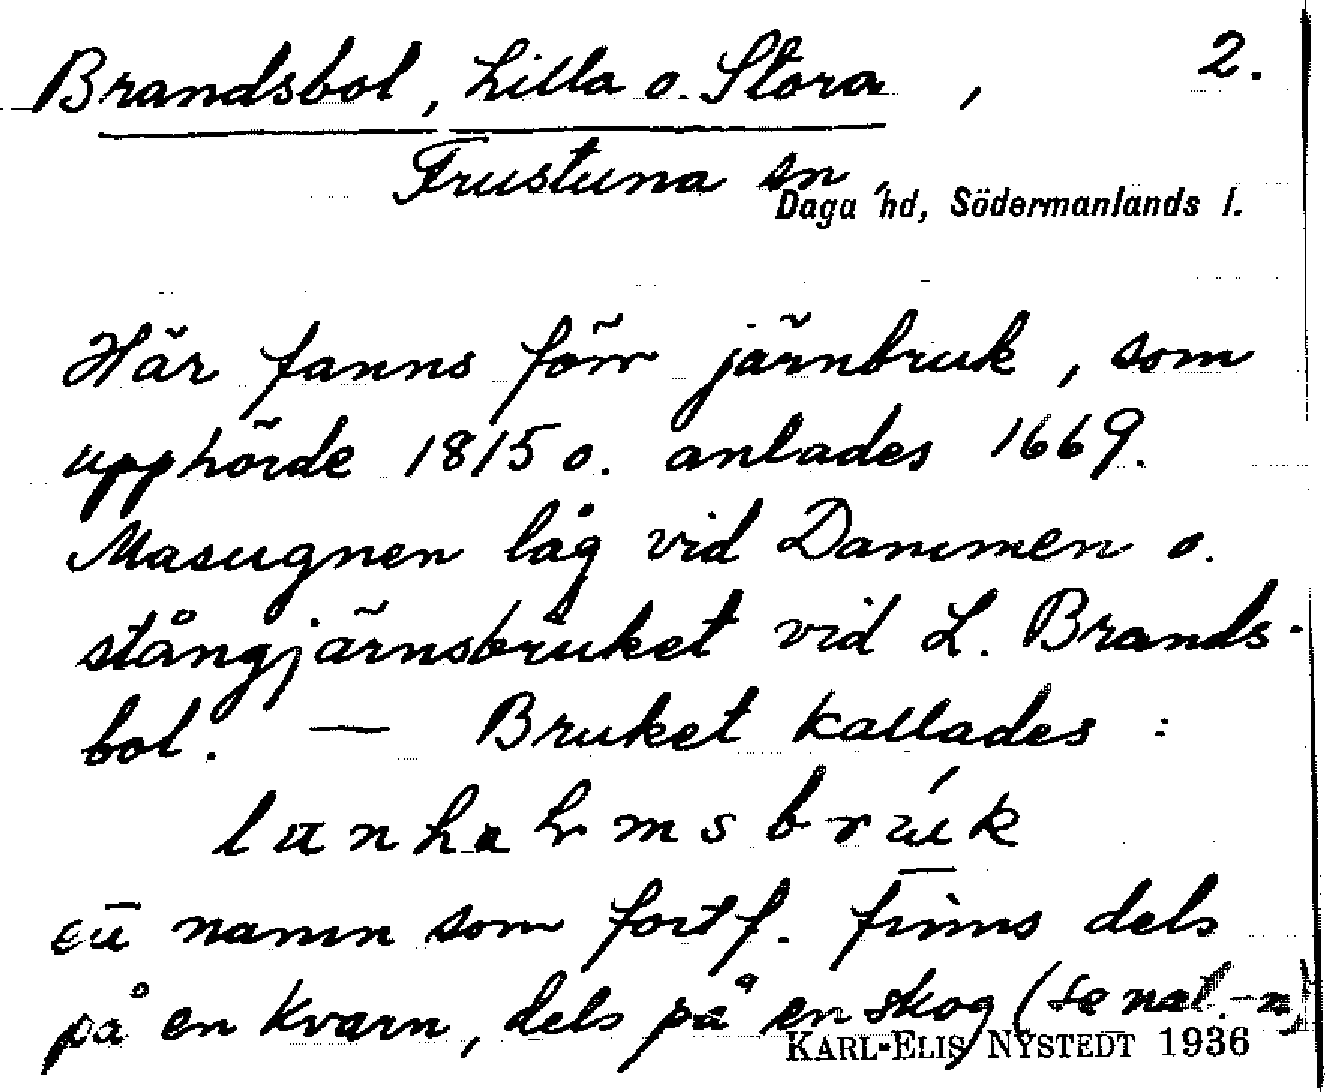 Brandsbol, Lilla o. Stora, 2.
Frustuna sn,
Daga hd, Södermanlands l.
Här fanns förr järnbruk, som
upphörde 1815 o. anlades 1669.
Masugnen låg vid Dammen o.
stångjärnsbruket vid L. Brands-
bol. — Bruket kallades:
namn som fortf. finns dels
på en kvarn, dels på en skog (se nat.-n)
KARL-ELIS NYSTEDT 1936